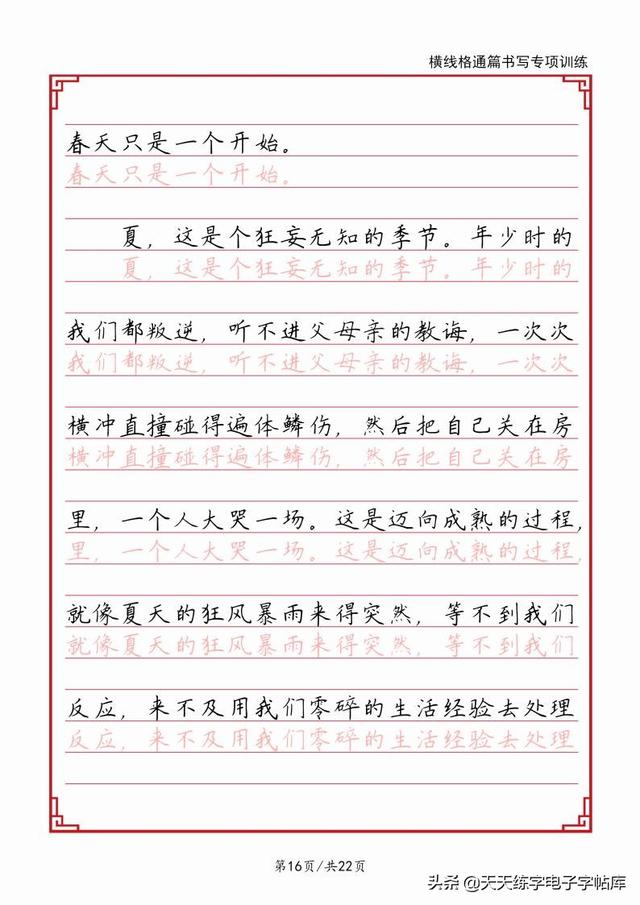 横线格通篇书写专项训练
春天只是一个开始。
春天只是一个开始。
夏，这是个狂妄无知的季节。年少时的
夏，这是个狂妄无知的季节。年少时的
我们都叛逆，听不进父母亲的教诲，一次次
我们都叛逆，听不进父母亲的教诲，一次次
横冲直撞碰得遍体鳞伤，然后把自己关在房
横冲直撞碰得遍体鳞伤，然后把自己关在房
里，一个人大哭一场。这是迈向成熟的过程，
里，一个人大哭一场。这是迈向成熟的过程，
就像夏天的狂风暴雨来得突然，等不到我们
就像夏天的狂风暴雨来得突然，等不到我们
反应，来不及用我们零碎的生活经验去处理
反应，来不及用我们零碎的生活经验去处理
第16页/共22页
头条 @天天练字电子字帖库